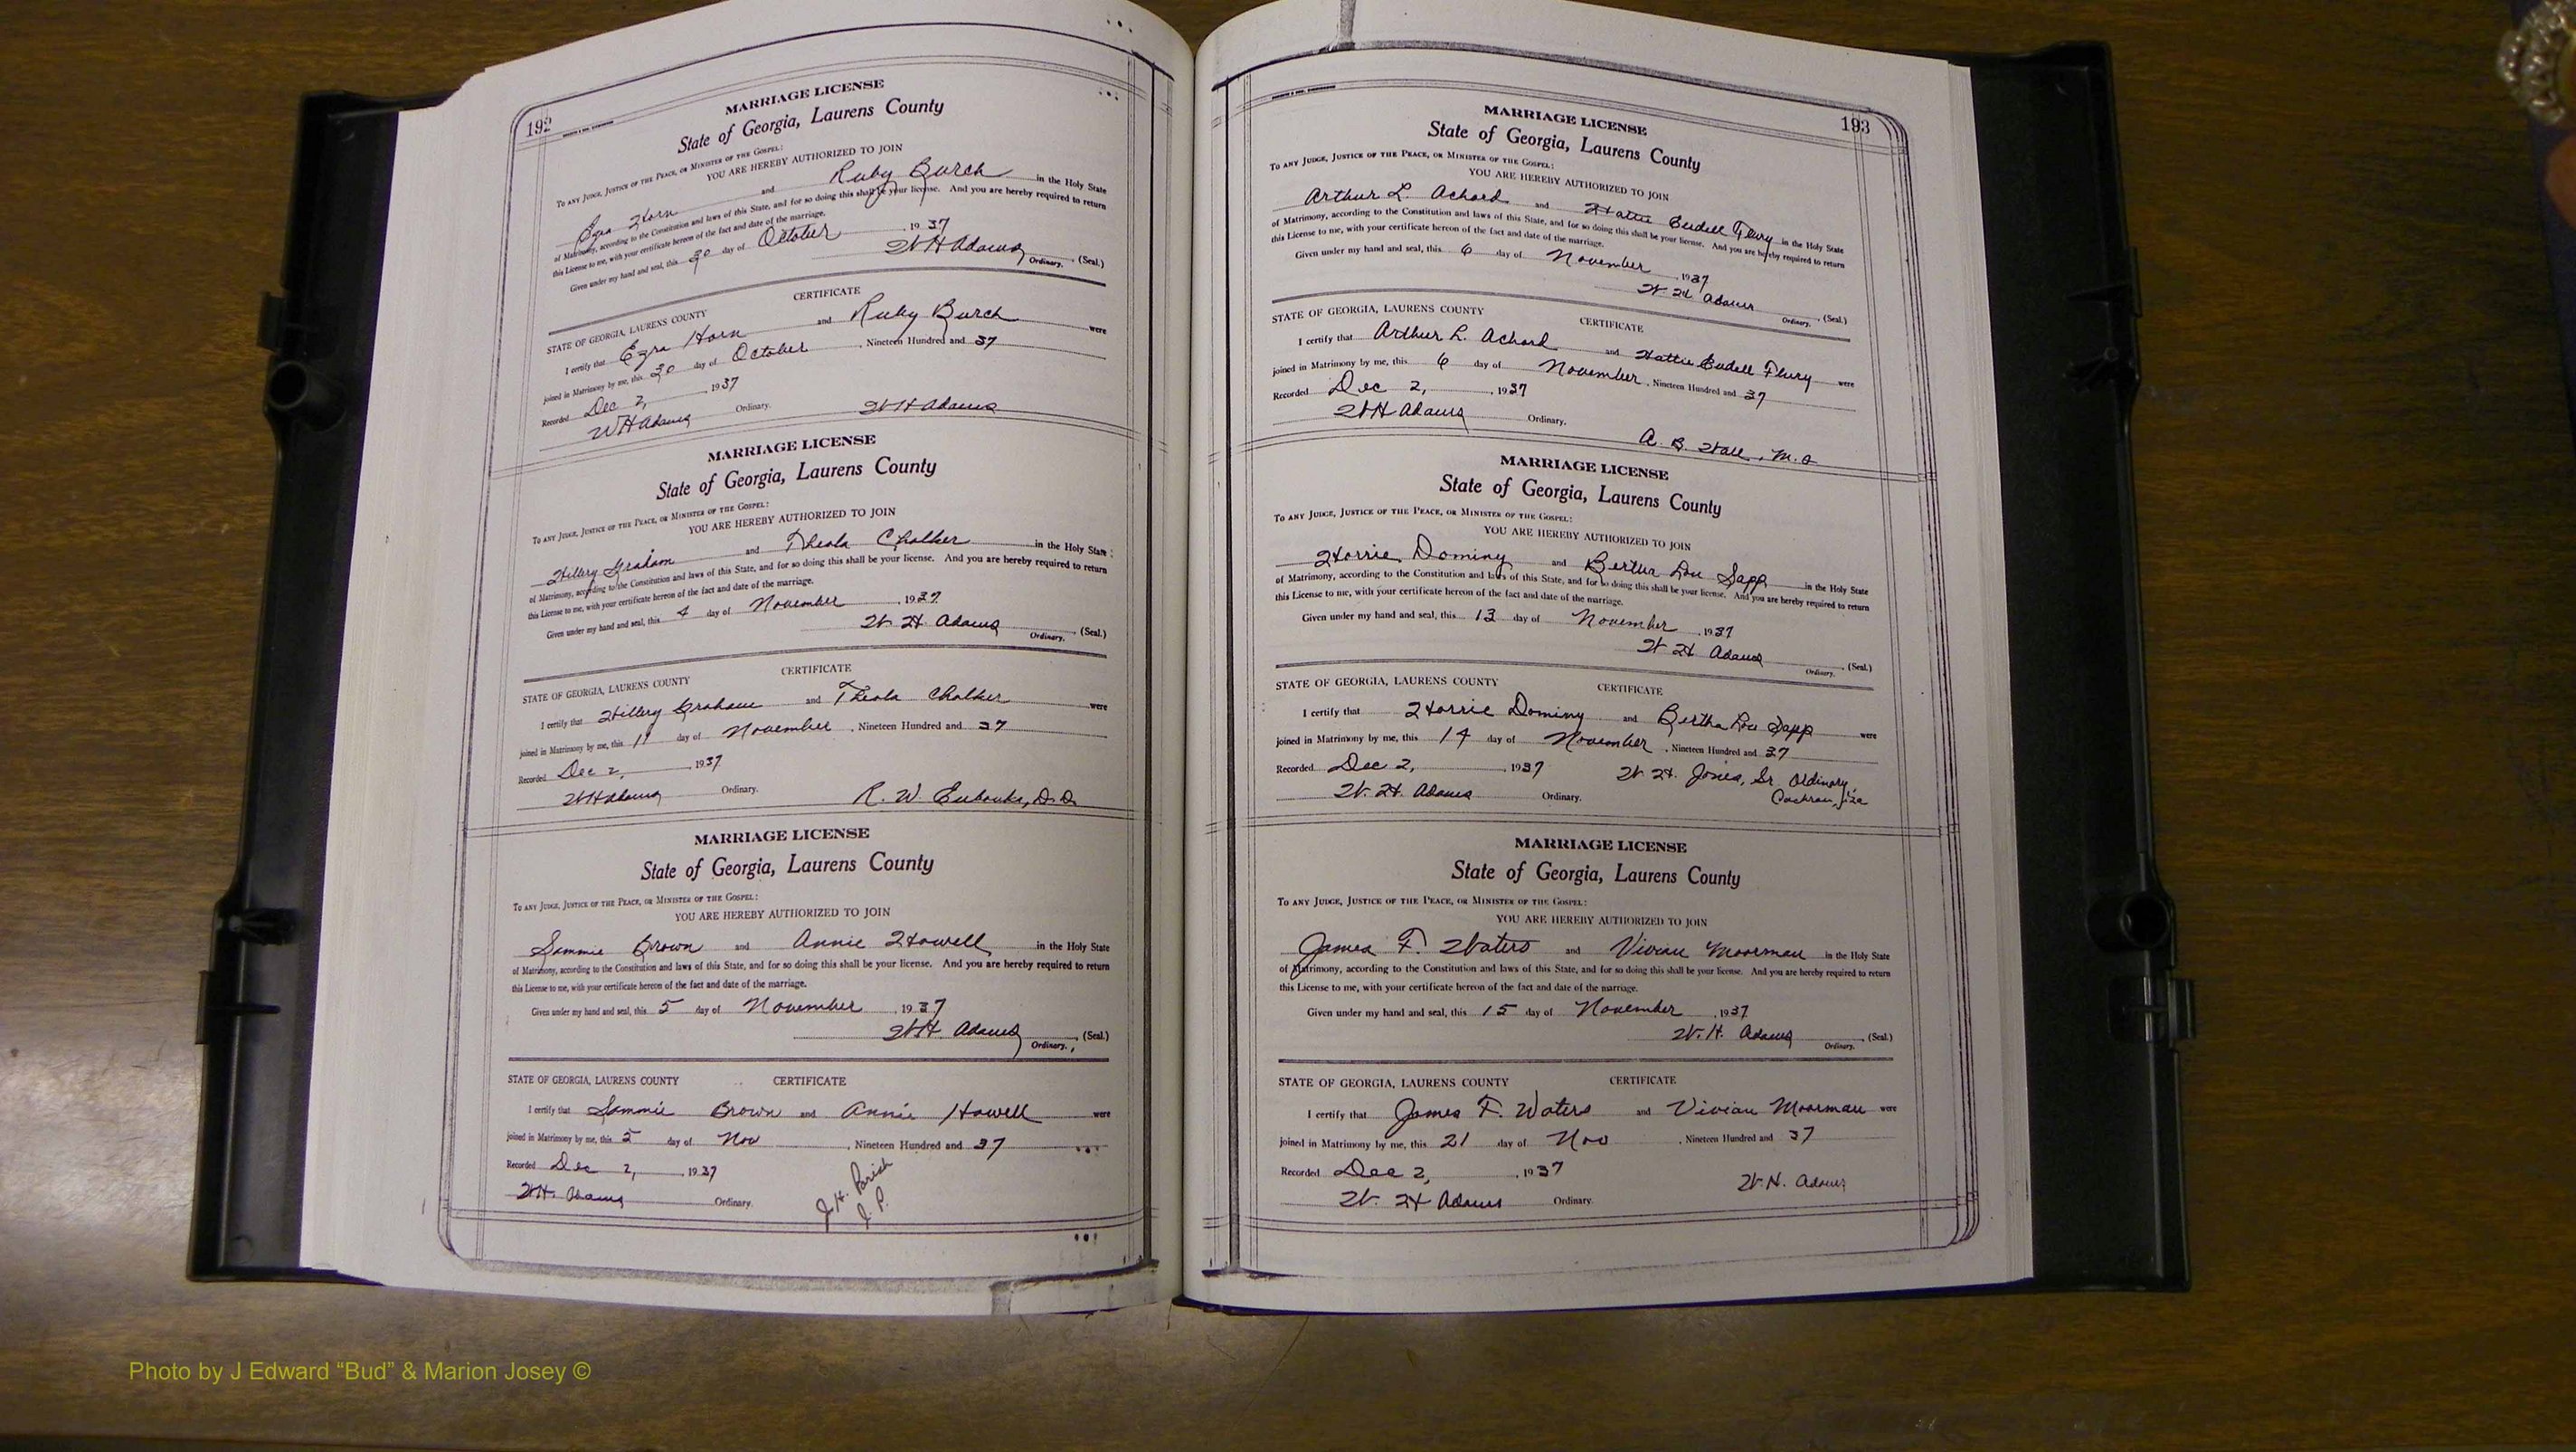 192
MARRIAGE LICENSE
State of Georgia, Laurens County
To any Judge, Justice of the Peace, or Minister of the Gospel:
YOU ARE HEREBY AUTHORIZED TO JOIN
Ezra Horn and Ruby Burch in the Holy State
of Matrimony, according to the Constitution and laws of this State, and for so doing this shall be your license. And you are hereby required to return
this License to me, with your certificate hereon of the fact and date of the marriage.
Given under my hand and seal, this 30 day of October, 1937
W H Adams Ordinary. (Seal.)
CERTIFICATE
STATE OF GEORGIA, LAURENS COUNTY
I certify that Ezra Horn and Ruby Burch were
joined in Matrimony by me, this 30 day of October, Nineteen Hundred and 37
Recorded Dec 2, 1937
W H Adams Ordinary. W H Adams
MARRIAGE LICENSE
State of Georgia, Laurens County
To any Judge, Justice of the Peace, or Minister of the Gospel:
YOU ARE HEREBY AUTHORIZED TO JOIN
Hillery Graham and Theola Chalker in the Holy State
of Matrimony, according to the Constitution and laws of this State, and for so doing this shall be your license. And you are hereby required to return
this License to me, with your certificate hereon of the fact and date of the marriage.
Given under my hand and seal, this 4 day of November, 1937
W. H. Adams Ordinary. (Seal.)
CERTIFICATE
STATE OF GEORGIA, LAURENS COUNTY
I certify that Hillery Graham and Theola Chalker were
joined in Matrimony by me, this 11 day of November, Nineteen Hundred and 37
Recorded Dec 2, 1937
W H Adams Ordinary. R. W. Eubanks, D.D.
MARRIAGE LICENSE
State of Georgia, Laurens County
To any Judge, Justice of the Peace, or Minister of the Gospel:
YOU ARE HEREBY AUTHORIZED TO JOIN
Sammie Brown and Annie Howell in the Holy State
of Matrimony, according to the Constitution and laws of this State, and for so doing this shall be your license. And you are hereby required to return
this License to me, with your certificate hereon of the fact and date of the marriage.
Given under my hand and seal, this 5 day of November, 1937
W. H. Adams Ordinary. (Seal.)
STATE OF GEORGIA, LAURENS COUNTY CERTIFICATE
I certify that Sammie Brown and Annie Howell were
joined in Matrimony by me, this 5 day of Nov, Nineteen Hundred and 37
Recorded Dec 2, 1937
W. H. Adams Ordinary. J. H. Parish
J. P.
193
MARRIAGE LICENSE
State of Georgia, Laurens County
To any Judge, Justice of the Peace, or Minister of the Gospel:
YOU ARE HEREBY AUTHORIZED TO JOIN
Arthur L. Achord and Hattie Eudell Flury in the Holy State
of Matrimony, according to the Constitution and laws of this State, and for so doing this shall be your license. And you are hereby required to return
this License to me, with your certificate hereon of the fact and date of the marriage.
Given under my hand and seal, this 6 day of November, 1937
W. H. Adams Ordinary. (Seal.)
STATE OF GEORGIA, LAURENS COUNTY CERTIFICATE
I certify that Arthur L. Achord and Hattie Eudell Flury were
joined in Matrimony by me, this 6 day of November, Nineteen Hundred and 37
Recorded Dec 2, 1937
W H Adams Ordinary.
A. B. Hall, M. G.
MARRIAGE LICENSE
State of Georgia, Laurens County
To any Judge, Justice of the Peace, or Minister of the Gospel:
YOU ARE HEREBY AUTHORIZED TO JOIN
Horrie Dominy and Bertha Lou Sapp in the Holy State
of Matrimony, according to the Constitution and laws of this State, and for so doing this shall be your license. And you are hereby required to return
this License to me, with your certificate hereon of the fact and date of the marriage.
Given under my hand and seal, this 13 day of November, 1937
W H Adams Ordinary. (Seal.)
STATE OF GEORGIA, LAURENS COUNTY CERTIFICATE
I certify that Horrie Dominy and Bertha Lou Sapp were
joined in Matrimony by me, this 14 day of November, Nineteen Hundred and 37
Recorded Dec 2, 1937 W. H. Jones, Sr. Ordinary,
W. H. Adams Ordinary. Cochran, Ga
MARRIAGE LICENSE
State of Georgia, Laurens County
To any Judge, Justice of the Peace, or Minister of the Gospel:
YOU ARE HEREBY AUTHORIZED TO JOIN
James F. Waters and Vivian Moorman in the Holy State
of Matrimony, according to the Constitution and laws of this State, and for so doing this shall be your license. And you are hereby required to return
this License to me, with your certificate hereon of the fact and date of the marriage.
Given under my hand and seal, this 15 day of November, 1937
W. H. Adams Ordinary. (Seal.)
STATE OF GEORGIA, LAURENS COUNTY CERTIFICATE
I certify that James F. Waters and Vivian Moorman were
joined in Matrimony by me, this 21 day of Nov, Nineteen Hundred and 37
Recorded Dec 2, 1937
W. H. Adams Ordinary. W. H. Adams
Photo by J Edward “Bud” & Marion Josey ©